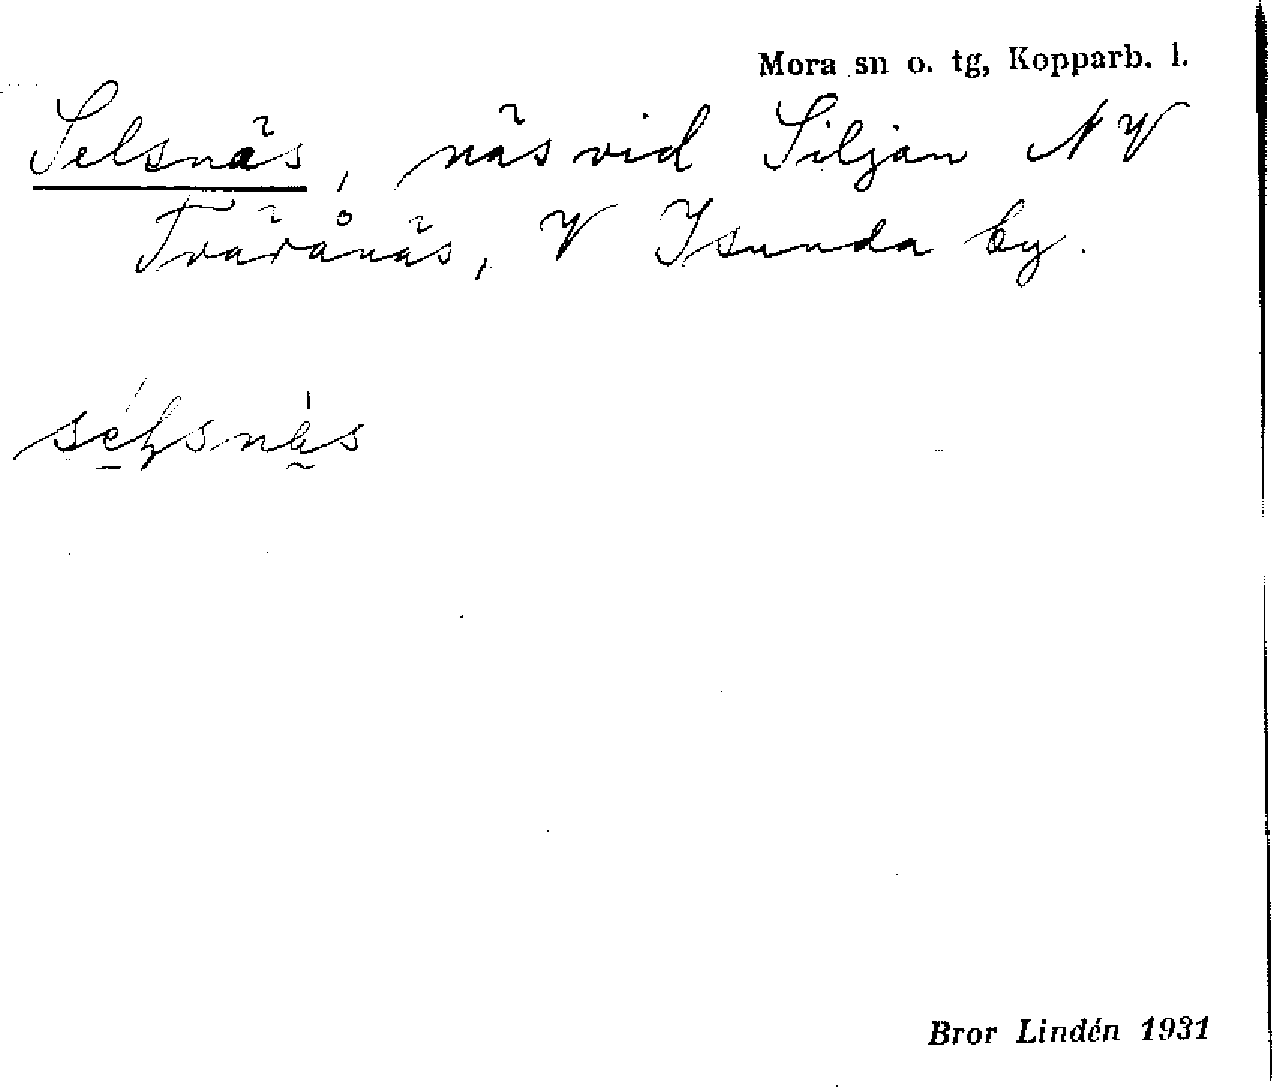 Mora sn o. tg, Kopparb. l.
Selsnäs, näs vid Siljan NV
Tvärånäs, V Isunda by.
sélsnä̀s
Bror Lindén 1931